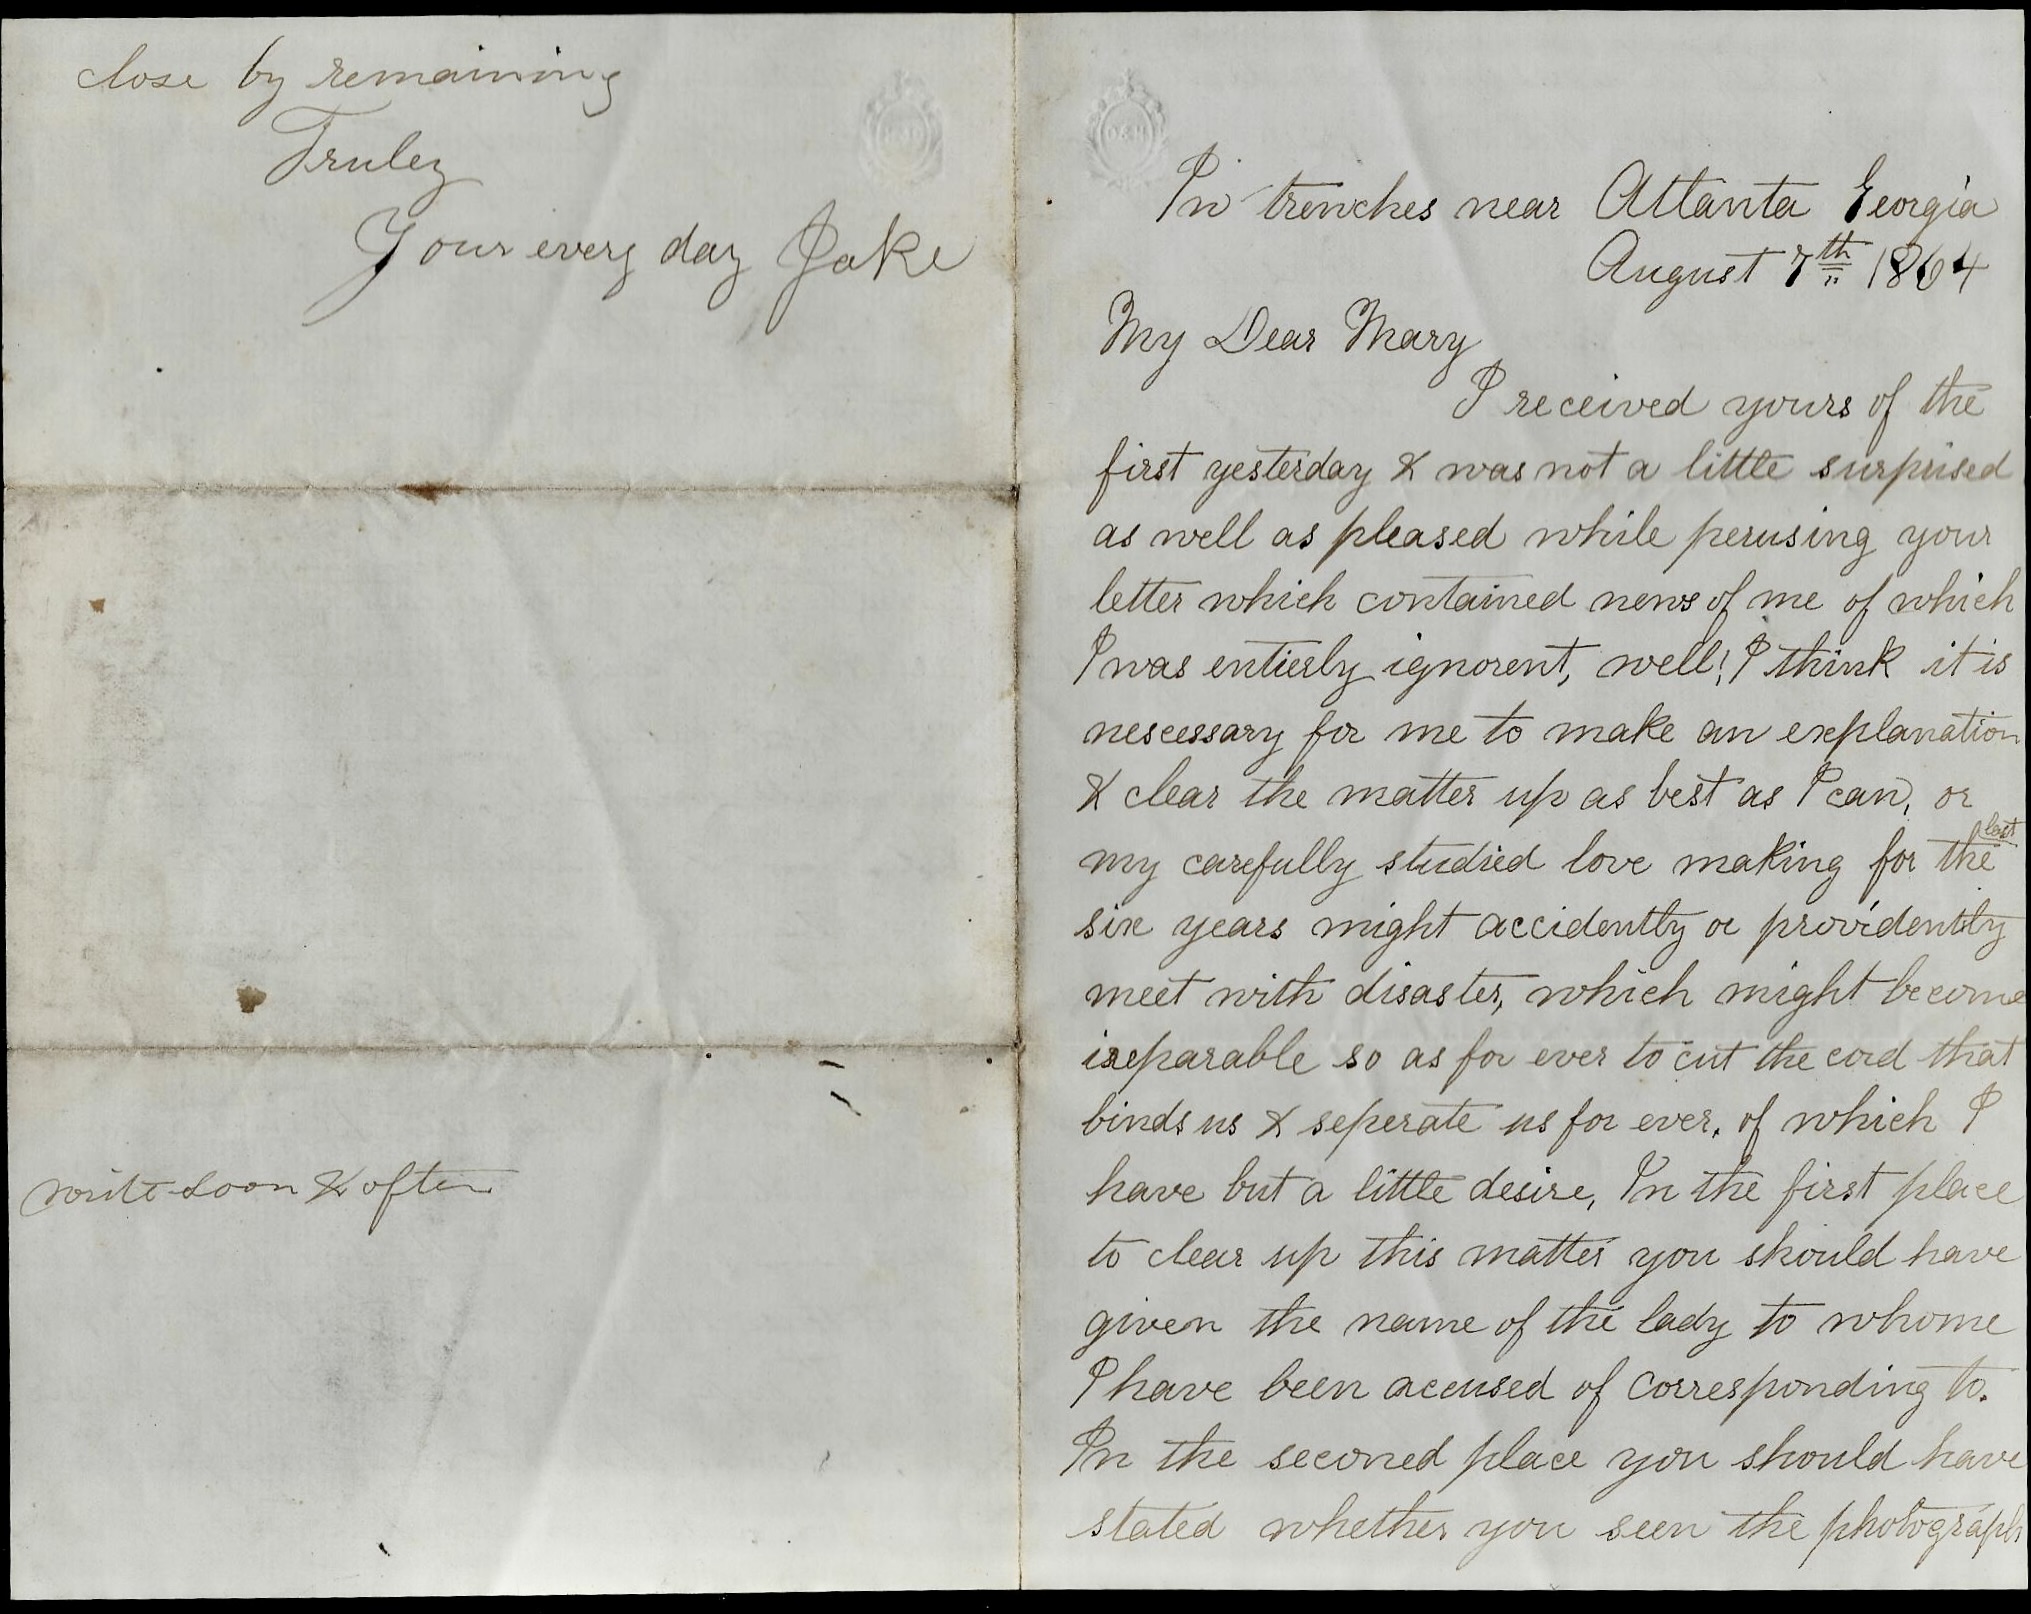 close by remaining
Truley
Your every day Jake
write soon & often
In trenches near Atlanta Georgia
August 7th 1864
My Dear Mary
I received yours of the
first yesterday & was not a little surprised
as well as pleased while perusing your
letter which contained news of me of which
I was entierly ignorent, well! I think it is
nescessary for me to make an explanation
& clear the matter up as best as I can, or
my carefully studied love making for the last
six years might accidently or providently
meet with disaster, which might become
ireparable so as for ever to cut the cord that
binds us & seperate us for ever. of which I
have but a little desire, In the first place
to clear up this matter you should have
given the name of the lady to whome
I have been accused of corresponding to.
In the seconed place you should have
stated whether you seen the photograph